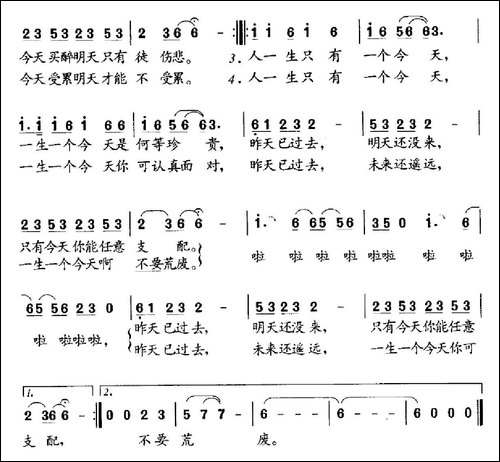 2 3 5 3 2 3 5 3 | 2 3 6 6 - :‖: i i 6 i 6 | i 6 5 6 6 3. |
今天买醉明天只有 徒 伤悲。 3. 人一生只 有 一个今 天,
今天受累明天才能 不 受累。 4. 人一生只 有 一个今 天,
i. i i 6 i 6 6 | i 6 5 5 6 6 3. | 6 1 2 3 2 - | 5 3 2 3 2 - |
一生一个今 天是 何等珍 贵, 昨天已过去, 明天还没来,
一生一个今 天你 可认真面 对, 昨天已过去, 未来还遥远,
2 3 5 3 2 3 5 3 | 2 3 6 6 - | i. 6 6 5 5 6 | 3 5 0 i. 6 |
只有今天你能任意 支 配。
一生一个今天啊 不要荒废。
啦 啦 啦 啦 啦 啦啦 啦 啦
6 5 5 6 2 3 0 | 6 1 2 3 2 - | 5 3 2 3 2 - | 2 3 5 3 2 3 5 3 |
啦 啦啦啦, 昨天已过去, 明天还没来, 只有今天你能任意
昨天已过去, 未来还遥远, 一生一个今天你可
1. 2.
2 3 6 6 - :‖ 0 0 2 3 | 5 7 7 - | 6 - - - | 6 - - - | 6 0 0 0 ‖
支 配, 不要荒 废。